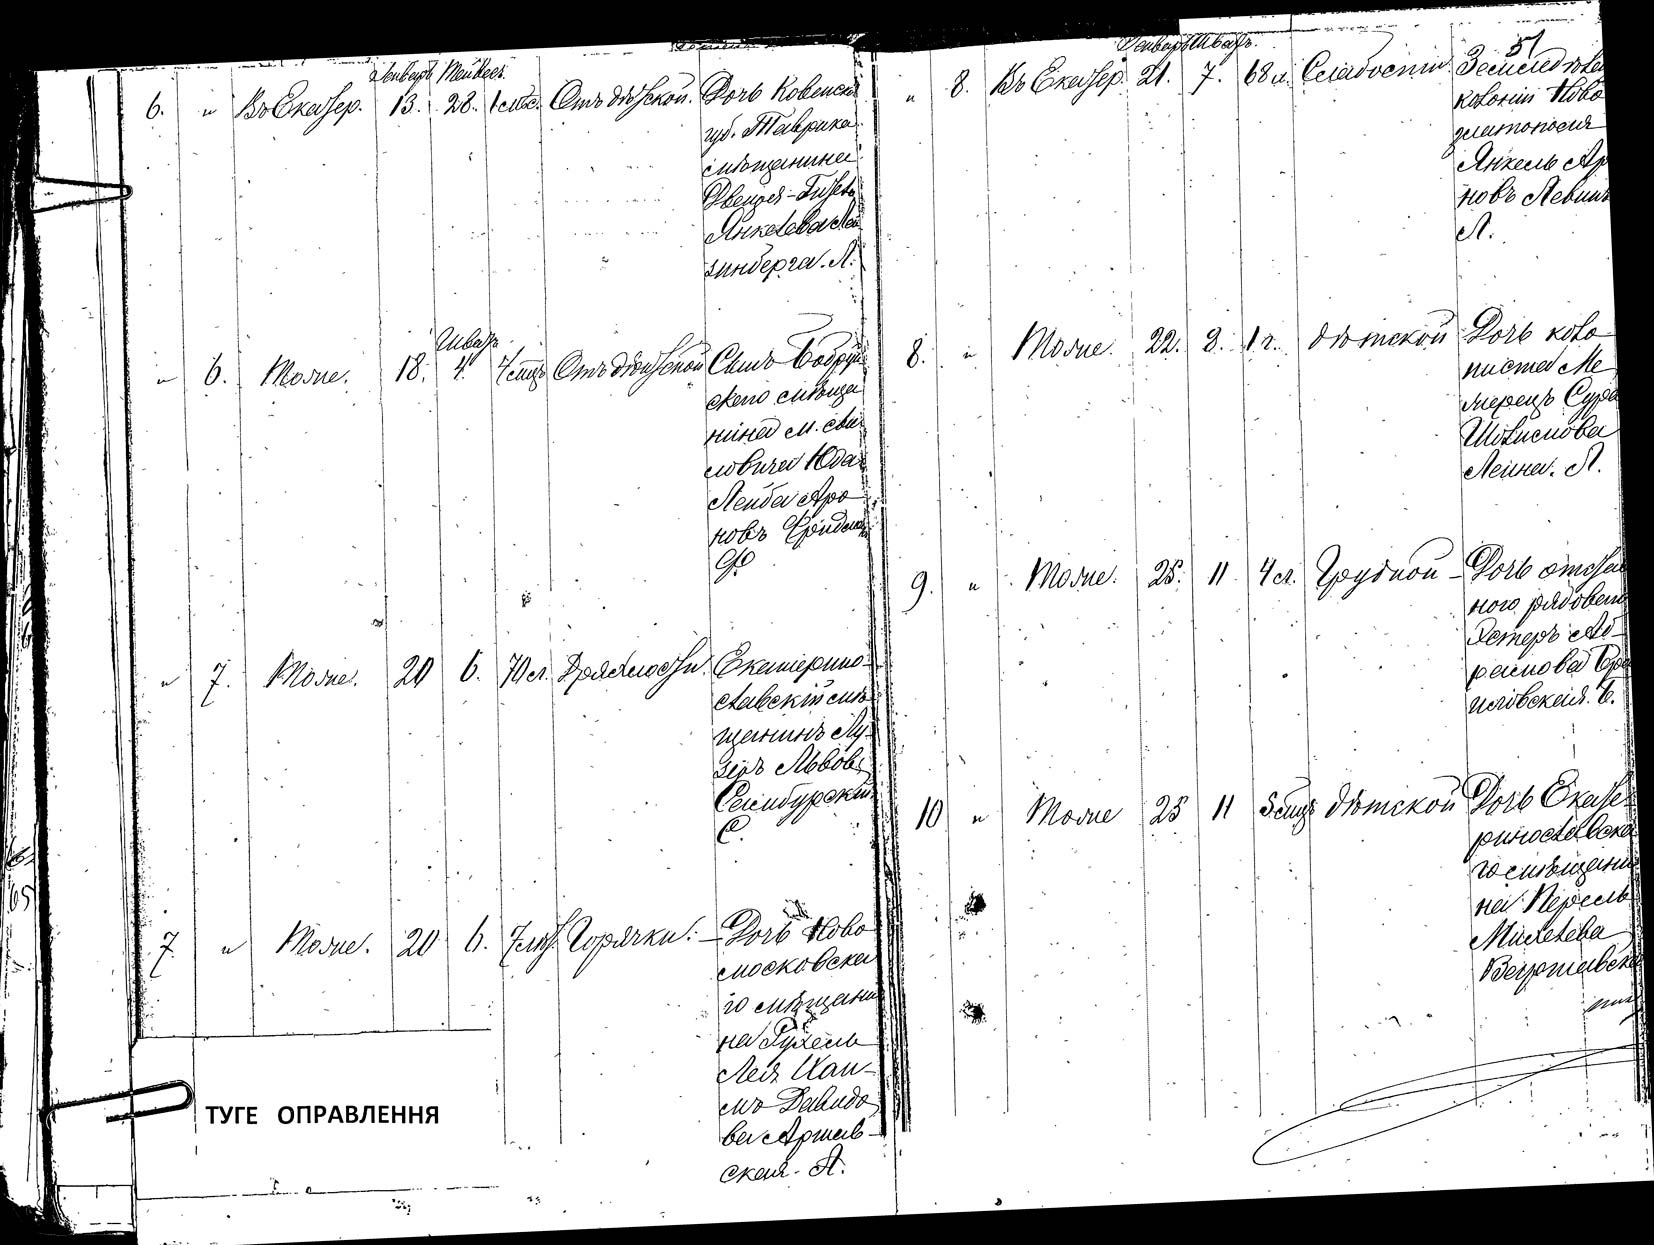 Январь Тейвес.
6. " Въ Екатер. 13. 28. 1 мѣс. Отъ дѣтской. Дочь Ковенской
губ. Таврика
мѣщанина
Двейра-
Янкелева Лей
зинберга. Л.
Шватъ
" 6. Тоже. 18. 4. 4 мѣц. Отъ дѣтской Сынъ Бобруй
скаго мѣща
нина м. Сви
словича Юда
Лейба Аро
новъ Фридман
Ф.
" 7. Тоже. 20 6. 70 л. Дряхлости. Екатерино-
славскій мѣ-
щанинъ Лу-
зеръ Львовъ
Самбурскій
С.
7 " Тоже. 20 6. 7 лѣт. Горячки. – Дочь Ново
московска
го мѣщани
на Рухель
Лея Хаи-
мъ Давидо
ва Аршав-
ская. А.
ТУГЕ ОПРАВЛЕННЯ
51
Январь Шватъ.
" 8. Въ Екатер. 21. 7. 68 л. Слабости. Земледѣлец
колоніи Ново
златополя
Янкель Ар
новъ Левинъ
Л.
8. " Тоже. 22. 8. 1 г. дѣтской Дочь коло
ниста Ме
жеречъ Сура
Шолиомова
Лейна. Л.
9. " Тоже. 25. 11 4 л. Грудной – Дочь отстав
ного рядового
Эстеръ Аб-
рамова
Б.
10 " Тоже 25 11 5 мѣц дѣтской Дочь Екате-
ринославска
го мѣщани
на Песель
Михелева